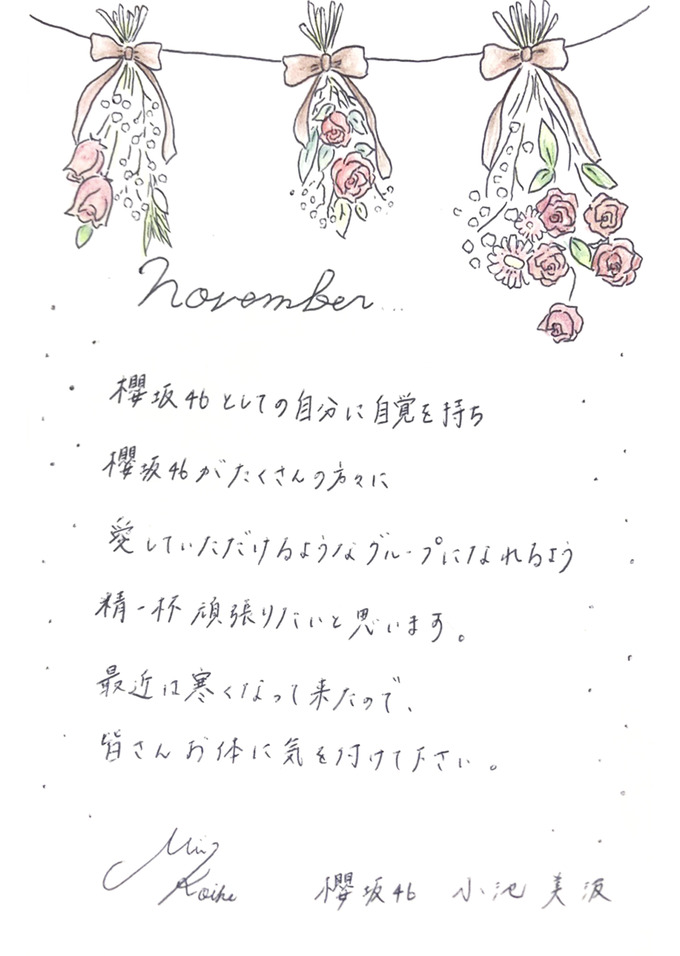 November...
櫻坂46としての自分に自覚を持ち
櫻坂46がたくさんの方々に
愛していただけるようなグループになれるよう
精一杯頑張りたいと思います。
最近は寒くなって来たので、
皆さんお体に気を付けて下さい。
Mii
Koike
櫻坂46 小池美波